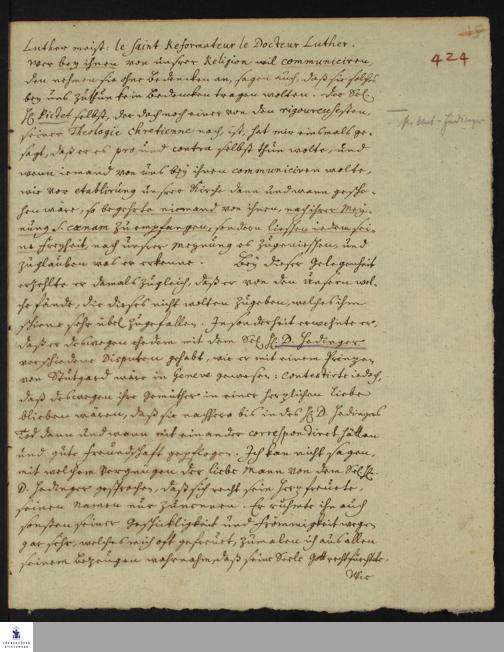 15
424
Luther meist: le Saint Reformateur le Docteur Luther.
Wer bey ihnen von unsrer Religion wil communiciren,
den nehmen sie ohne Bedencken an, sagen auch, daß sie solches
bey uns zuthun kein Bedencken tragen wolten. Der Sel.
H. Pictet selbst, der doch noch einer von den rigoureusesten,
seiner Theologie chretienne nach, ist, hat mir einsmals ge-
sagt, daß er es pro und contra selbst thun wolte, und
wann iemand von uns bey ihnen communiciren wolte,
wie vor etablirung unsrer Kirche dann und wann gesche-
hen wäre, so begehrte niemand von ihnen, nach ihrer Mey-
nung S. coenam zu empfangen, sondern liessen iedem sei-
ne Freyheit, nach unsrer Meynung es zugeniessen, und
zuglauben was er erkenne. Bey dieser Gelegenheit
erzehlte er damals zugleich, daß er von den Unsern wel-
che fände, die dieses nicht wolten zugeben, welches ihm
schiene sehr übel zugefallen. Insonderheit erwehnte er,
daß er deswegen ehedem mit dem Sel. H. D. Hedinger
verschiedene Disputen gehabt, wie er mit einem Prinzen
von Stutgard wäre in Geneve gewesen: contestirte iedoch,
daß deswegen ihre Gemüther in einer herzlichen Liebe
blieben wären, daß sie nachhero bis in des H. D. Hedingers
Tod dann und wann mit einander correspondiret hätten
und gute Freundschaft gepflogen. Ich kan nicht sagen,
mit welchem Vergnügen der liebe Mann von dem Sel. H.
D. Hedinger gesprochen, daß sich recht sein Herz freuete,
seinen Namen nur zunennen. Er rühmte ihn auch
seiner Geschicklichkeit und Frömmigkeit wegen
gar sehr, welches mich oft gefreuet, zumalen ich aus allen
seinem Bezeugen wahrnahm, daß seine Seele Gott recht fürchtete.
Wie
FRANCKESCHE
STIFTUNGEN